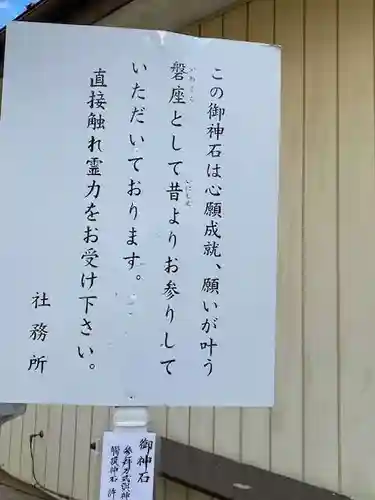 この御神石は心願成就、願いが叶う
磐座として昔よりお参りして
いただいております。
直接触れ霊力をお受け下さい。
社務所
御神石